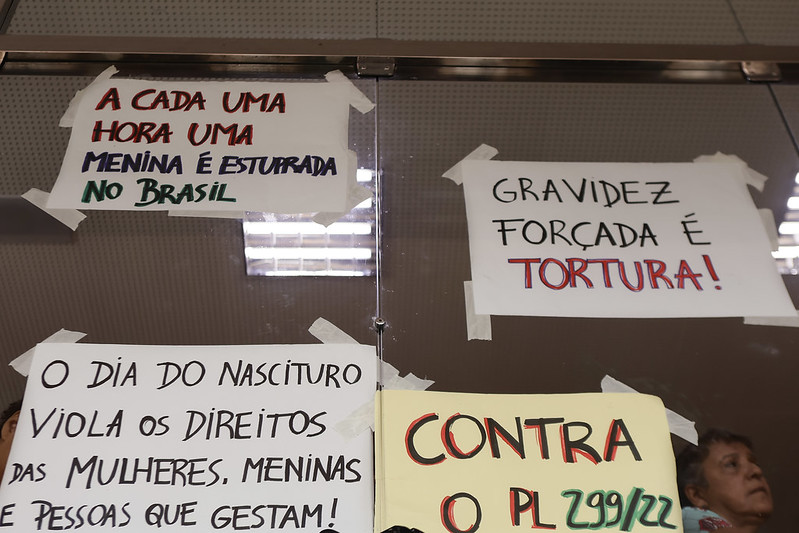 A CADA UMA
HORA UMA
MENINA É ESTUPRADA
NO BRASIL
GRAVIDEZ
FORÇADA É
TORTURA!
O DIA DO NASCITURO
VIOLA OS DIREITOS
DAS MULHERES, MENINAS
E PESSOAS QUE GESTAM!
CONTRA
O PL 299/22